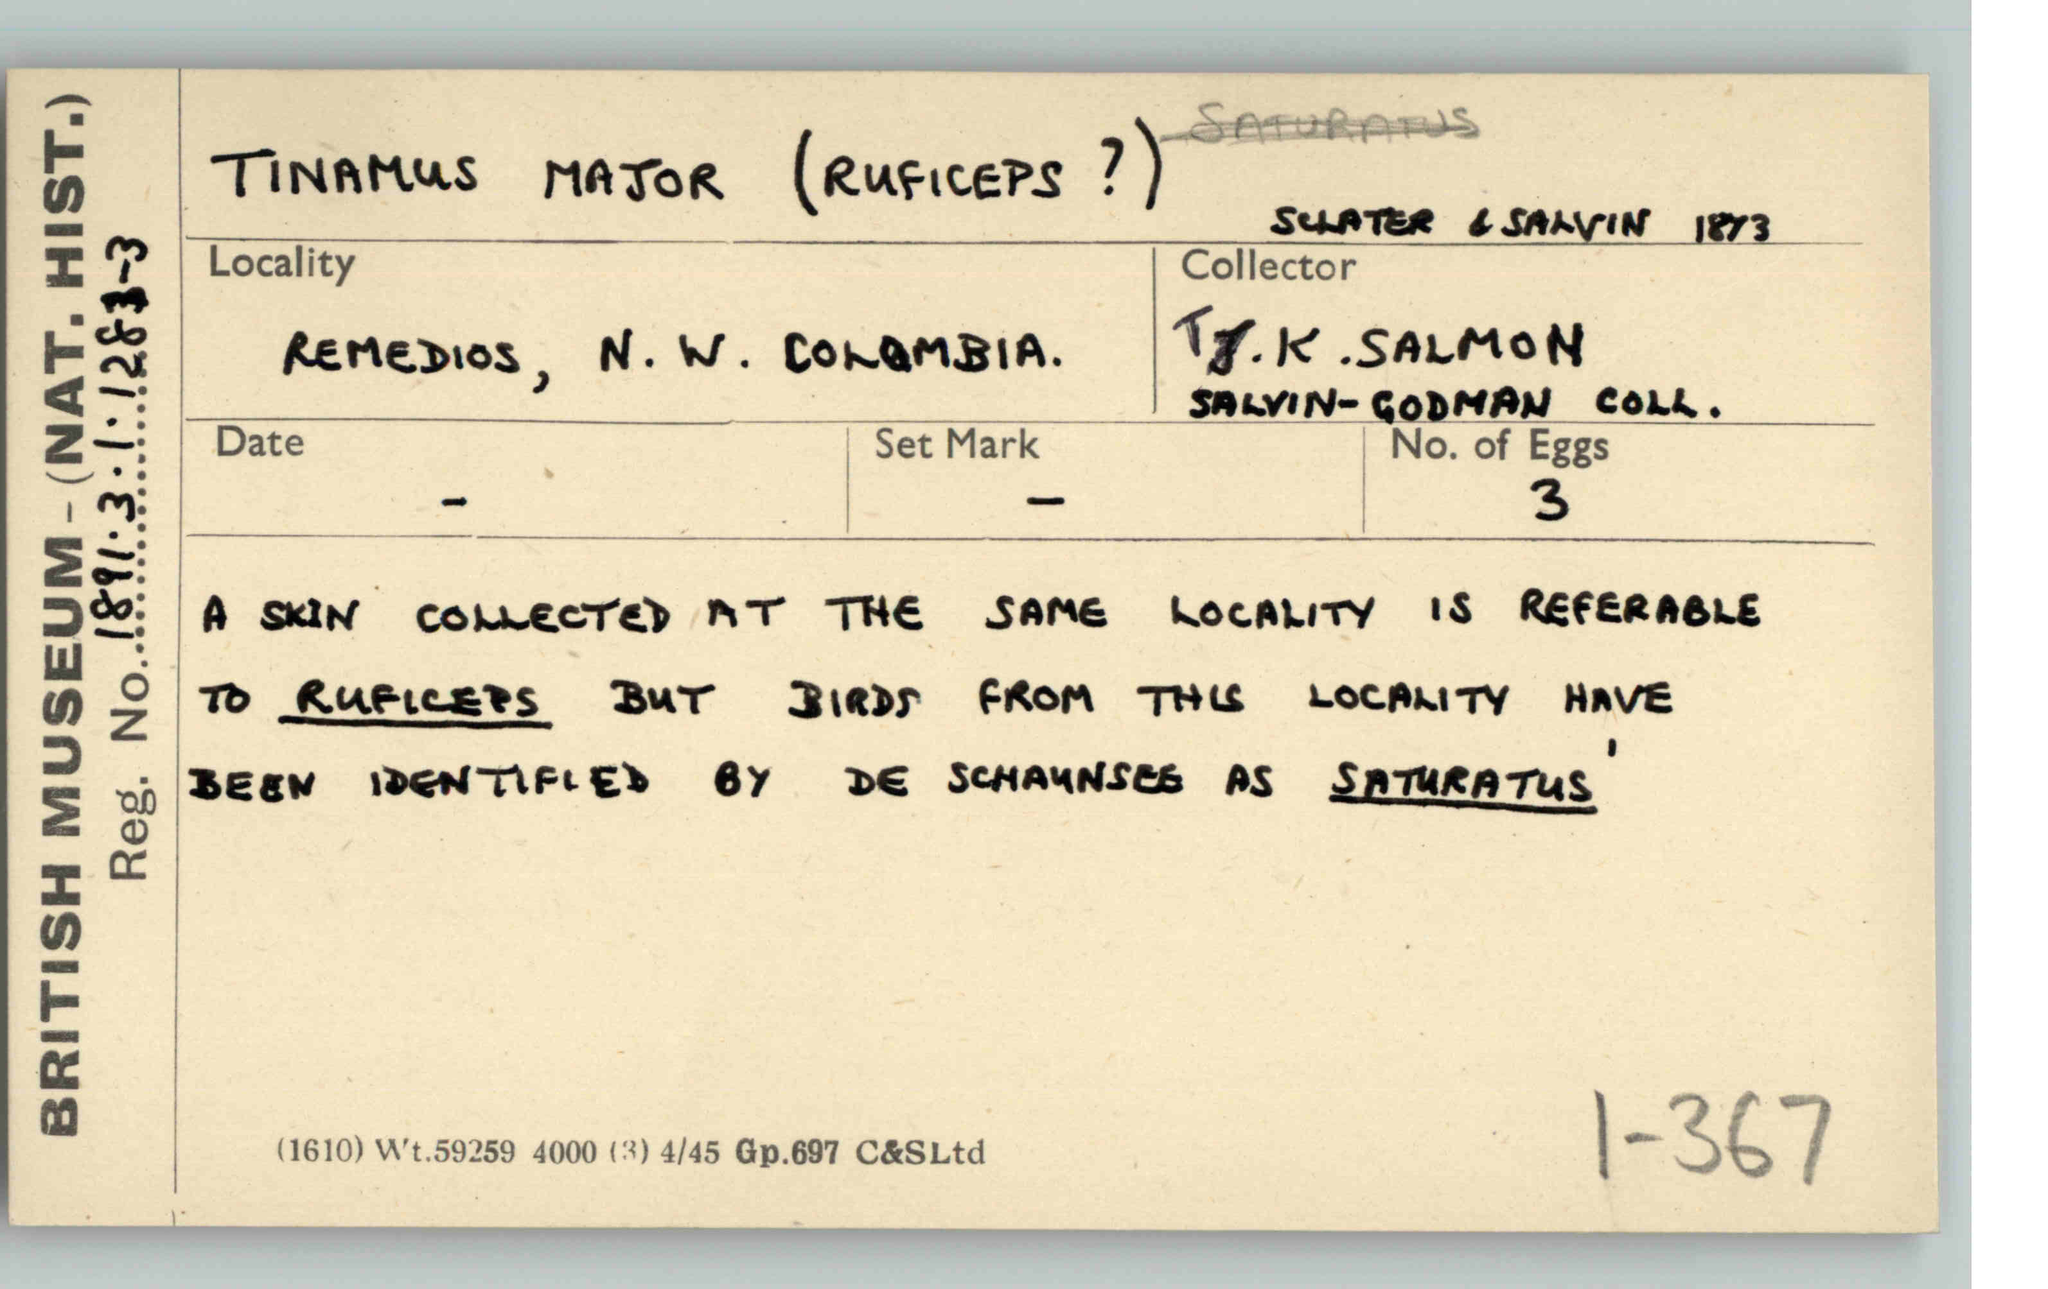 BRITISH MUSEUM - (NAT. HIST.)
Reg. No. 1891.3.1.1283-3
SATURATUS
TINAMUS MAJOR (RUFICEPS ?)
SCLATER & SALVIN 1873
Locality
REMEDIOS, N. W. COLOMBIA.
Collector
T. K. SALMON
SALVIN-GODMAN COLL.
Date
-
Set Mark
-
No. of Eggs
3
A SKIN COLLECTED AT THE SAME LOCALITY IS REFERABLE
TO RUFICEPS BUT BIRDS FROM THIS LOCALITY HAVE
BEEN IDENTIFIED BY DE SCHAUNSEE AS SATURATUS'
(1610) Wt.59259 4000 (3) 4/45 Gp.697 C&S Ltd
1-367